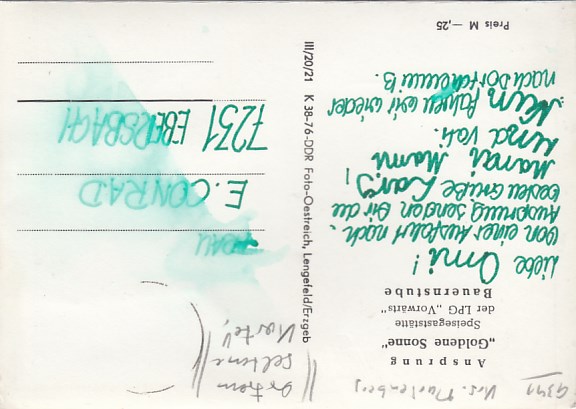 9341 Krs. Marienberg
Ansprung
„Goldene Sonne“
Speisegaststätte
der LPG „Vorwärts“
Bauernstube
Liebe Omi!
Von einer Ausfahrt nach
Ansprung senden Dir die
besten Grüße Lars,
Mami
und Vati.
Nun fahren wir wieder
nach Dorfchemnitz.
Preis M —,25
III/20/21 K 38-76-DDR Foto-Oestreich, Lengefeld/Erzgeb
seltene
Karte!
FRAU
E. CONRAD
7231 EBERSBACH